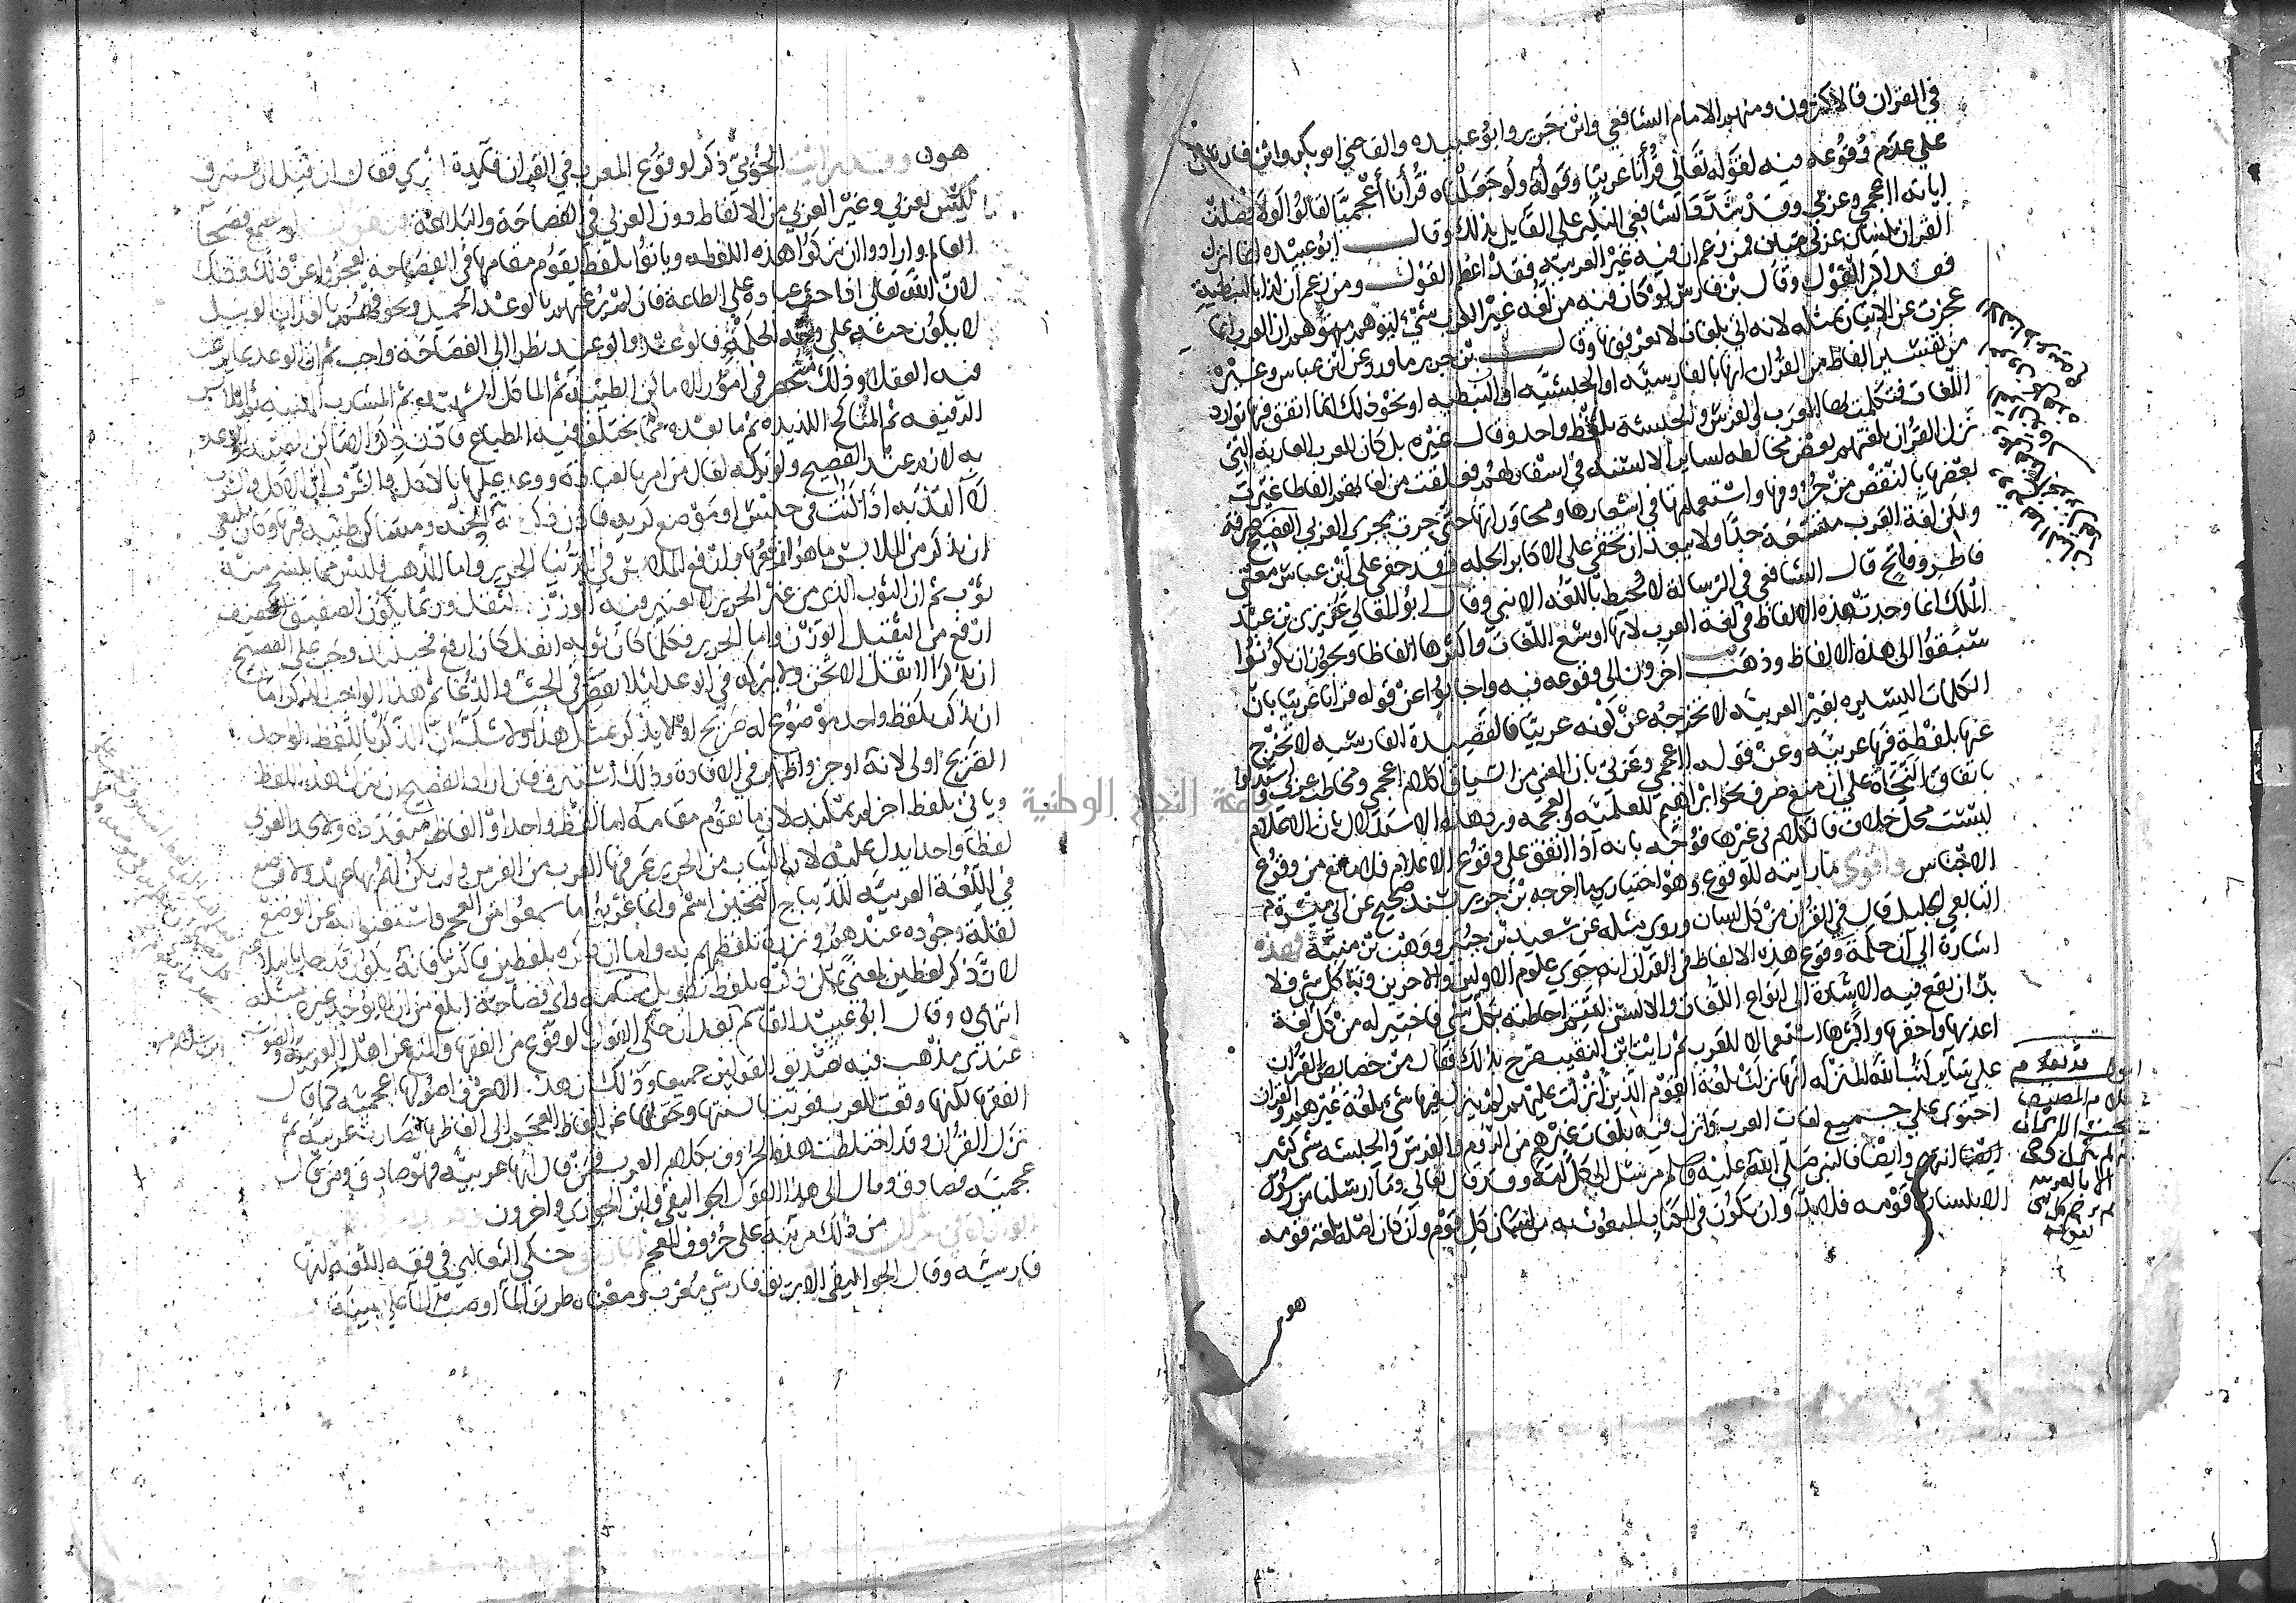 في القران فالاكثرون ومنهم الامام الشافعي وابن جرير وابو عبيده والقاضي ابو بكر وابن فارس
علي عدم وقوعه فيه لقوله تعالي قرأنا عربيا وقوله ولو جعلناه قرأنا أعجميا لقالوا لولا فصلت
اياته ااعجمي وعربي وقد شدد الشافعي النكير علي القايل بذلك وقال ابو عبيده انما انزل
القران بلسان عربي مبين فمن زعم ان فيه غير العربية فقد اعظم القول ومن زعم ان كذا بالنبطية
فقد اكبر القول وقال بن فارس لو كان فيه من لغه غير العرب شيء لتوهم متوهم ان العرب انما
عجزت عن الاتيان بمثله لانه اتي بلغات لا تعرفونها وقال بن جرير ما ورد عن ابن عباس وغيره
من تفسير الفاظ من القران انها بالفارسيه او الحبشيه او النبطيه او نحو ذلك انما اتفق فيها توارد
اللغات فتكلمت بها العرب والفرس والحبشة بلفظ واحد وقال غيره بل كان للعرب العاربه التي
نزل القران بلغتهم بعض مخالطه لساير الالسنه في اسفارهم فعلقت من لغاتهم الفاظا غيرت
بعضها بالنقص من حروفها واستعملتها في اشعارها ومحاوراتها حتي جرت مجري العربي الفصيح
ولكن لغة العرب متسعة جدا ولا يبعد ان تخفي علي الاكابر الجله وقد خفي علي ابن عباس معني
فاطر وفاتح قال الشافعي في الرسالة لا يحيط باللغه الا نبي وقال ابو المعالي عزيزي بن عبد
الملك انما وجدت هذه الالفاظ في لغة العرب لانها اوسع اللغات واكثرها الفاظا ويجوز ان يكونوا
سبقوا الي هذه الالفاظ وذهب اخرون الي وقوعه فيه واجابوا عن قوله قرانا عربيا بان
الكلمات اليسيره بغير العربيه لا تخرجه عن كونه عربيا فالقصيدة الفارسيه لا تخرج
عنها بلفظة فيها عربيه وعن قوله ااعجمي وعربي بان المعني من السياق اكلام اعجمي ومخاطب عربي واستدلوا
باتفاق النحاة علي ان منع صرف نحو ابراهيم للعلميه والعجمه ورد هذا الاستدلال بان الاعلام
ليست محل خلاف فالكلام في غيرها فوجه بانه اذا اتفق علي وقوع الاعلام فلا مانع من وقوع
الاجناس واقوي ما رايته للوقوع وهو اختياري ما اخرجه بن جرير بسند صحيح عن ابي ميسرة
التابعي الجليل قال في القران من كل لسان وروي مثله عن سعيد بن جبير ووهب بن منبه فهذه
اشارة الي ان حكمة وقوع هذه الالفاظ في القران انه حوي علوم الاولين والاخرين ونبا كل شيء فلا
بد ان تقع فيه الاشارة الي انواع اللغات والالسن لتتم احاطته بكل شي فاختير له من كل لغة
اعذبها واخفها واكثرها استعمالا للعرب ثم رايت ابن النقيب صرح بذلك فقال من خصايص القران
علي ساير كتب الله المنزله انها نزلت بلغة القوم الذين انزلت عليهم لم ينزل فيها شيء بلغة غيرهم والقران
احتوي علي جميع لغات العرب وانزل فيه بلغات غيرهم من الروم والفرس والحبشه شي كثير
انتهي وايضا فالنبي صلي الله عليه وسلم مرسل الي كل امة وقد قال تعالي وما ارسلنا من رسول
الا بلسان قومه فلا بد وان يكون في الكتاب المبعوث به من لسان كل قوم وان كان اصله بلغة قومه
هو
هو وقد رايت الخويي ذكر لوقوع المعرب في القران فايدة اخري فقال ان قيل ان استبرق
ليس بعربي وغير العربي من الالفاظ دون العربي في الفصاحة والبلاغة فنقول لو اجتمع فصحا
العالم وارادوا ان يتركوا هذه اللفظه وياتوا بلفظ يقوم مقامها في الفصاحة لعجزوا عن ذلك وذلك
لان الله تعالي اذا حث عباده علي الطاعة فان لم يرغبهم بالوعد الجميل ويخوفهم بالعذاب الوبيل
لا يكون حثه علي وجه الحكمة فالوعد والوعيد نظرا الي الفصاحة واجب ثم ان الوعد بما يرغب
فيه العقلا وذلك منحصر في امور الاماكن الطيبة ثم الماكل الشهيه ثم المشارب الهنيه ثم الملابس
الرفيعه ثم المناكح اللذيذه ثم ما بعده مما يختلف فيه الطباع فاذن ذكر الاماكن الطيبه والوعد
به لازم عند الفصيح ولو تركه لقال من امر بالعبادة ووعد عليها بالاكل والشرب ان الاكل والشرب
لا التذ به اذا كنت في حبس او موضع كريه فاذن ذكر الجنه ومساكن طيبه فيها وكان ينبغي
ان يذكر من الملابس ما هو ارفعها وارفع الملابس في الدنيا الحرير واما الذهب فليس مما ينسج منه
ثوب ثم ان الثوب الذي من غير الحرير لا يعتبر فيه الوزن والثقل وربما يكون الصفيق الخفيف
ارفع من الثقيل الوزن واما الحرير فكلما كان ثوبه اثقل كان ارفع فحينئذ وجب علي الفصيح
ان يذكر الاثقل الاثخن ولا يتركه في الوعد ليلا يقصر في الحث والدعا ثم هذا الواجب الذكر اما
ان يذكر بلفظ واحد موضوع له صريح اولا يذكر بمثل هذا ولا شك ان الذكر باللفظ الواحد
الصريح اولي لانه اوجز واظهر في الافادة وذلك استبرق فان اراد الفصيح ان يترك هذه اللفظ
وياتي بلفظ اخر لم يمكنه لان ما يقوم مقامه اما لفظ واحد او الفاظ متعدده ولا يجد العربي
لفظا واحدا يدل عليه لان الثياب من الحرير عرفها العرب من الفرس ولم يكن لهم بها عهد ولا وضع
في اللغة العربيه للديباج الثخين اسم وانما عربوا ما سمعوا من العجم واستغنوا به عن الوضع
لقلة وجوده عندهم ونزرة تلفظهم به واما ان ذكره بلفظين فاكثر فانه يكون قد اخل بالبلاغه
لان ذكر لفظين لمعني يمكن ذكره بلفظ تطويل فعلم
انتهي وقال ابو عبيد القاسم بعد ان حكي القول بالوقوع عن الفقها والمنع عن اهل العربيه والصواب
عندي مذهب فيه تصديق القولين جميعا وذلك ان هذه الاحرف اصولها اعجميه كما قال
الفقها لكنها وقعت للعرب فعربتها بالسنتها وحولتها عن الفاظ العجم الي الفاظها فصارت عربيه ثم
نزل القران وقد اختلطت هذه الحروف بكلام العرب فمن قال انها عربيه فهو صادق ومن قال
عجميه فصادق ومال الي هذا القول الجواليقي وابن الجوزي واخرون
من ذلك مرتبة علي حروف المعجم حكي الثعالبي في فقه اللغه انها
فارسيه وقال الجواليقي الابريق فارسي معرب ومعناه طريق الما او صب الما علي هينة
جامعة النجاح الوطنية